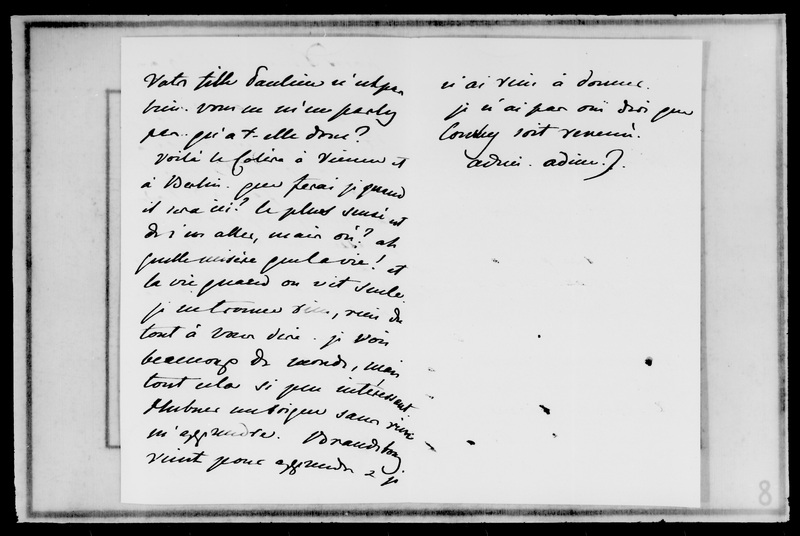 votre fille Pauline n'est pas
bien. vous ne m'en parlez
pas. qu'a t-elle donc?
voilà le Coléra à Vienne et
à Berlin. que ferai je quand
il sera ici? le plus sensé est
de s'en aller, mais où? ah
quelle misère que la vie! et
la vie quand on vit seule.
je ne trouve rien, rien du
tout à vous dire. je vois
beaucoup de monde, mais
tout cela si peu intéressant
Hubner sans rien
m'apprendre. Brandebourg
vient pour apprendre & je
n'ai rien à donner.
je n'ai pas ouï dire que
Cowley soit revenu.
adieu. adieu.
8